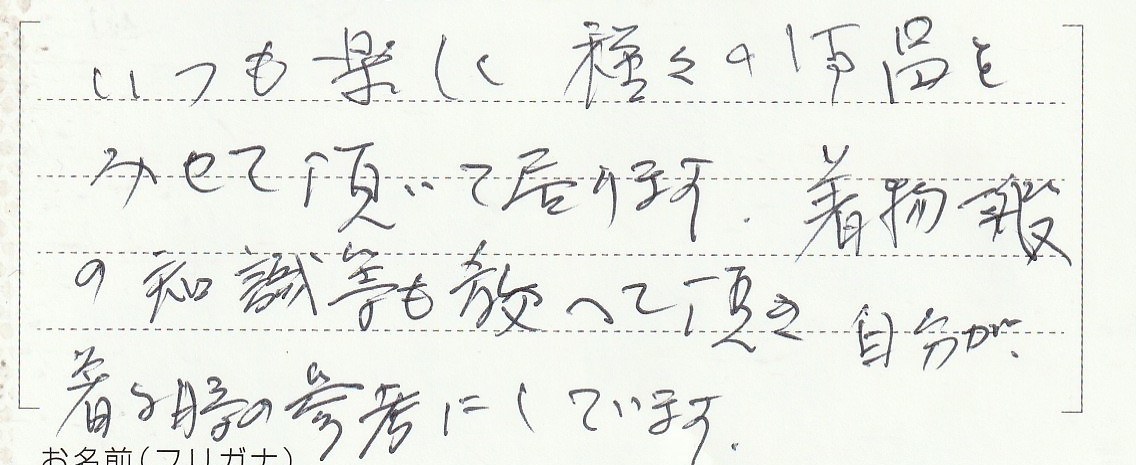 いつも楽しく種々の作品を
みせて頂いて居ります.着物一般
の知識等も教へて頂き自分が、
着る時の参考にしています.
お名前(フリガナ)